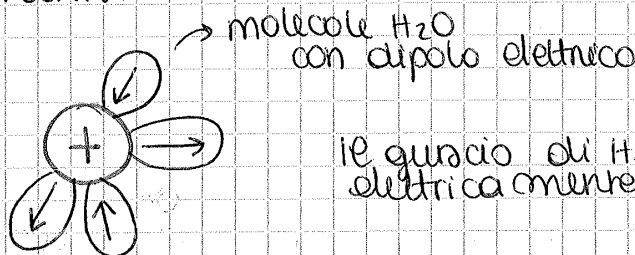 molecole H₂O
con dipolo elettrico
+
il guscio di H
elettricamente